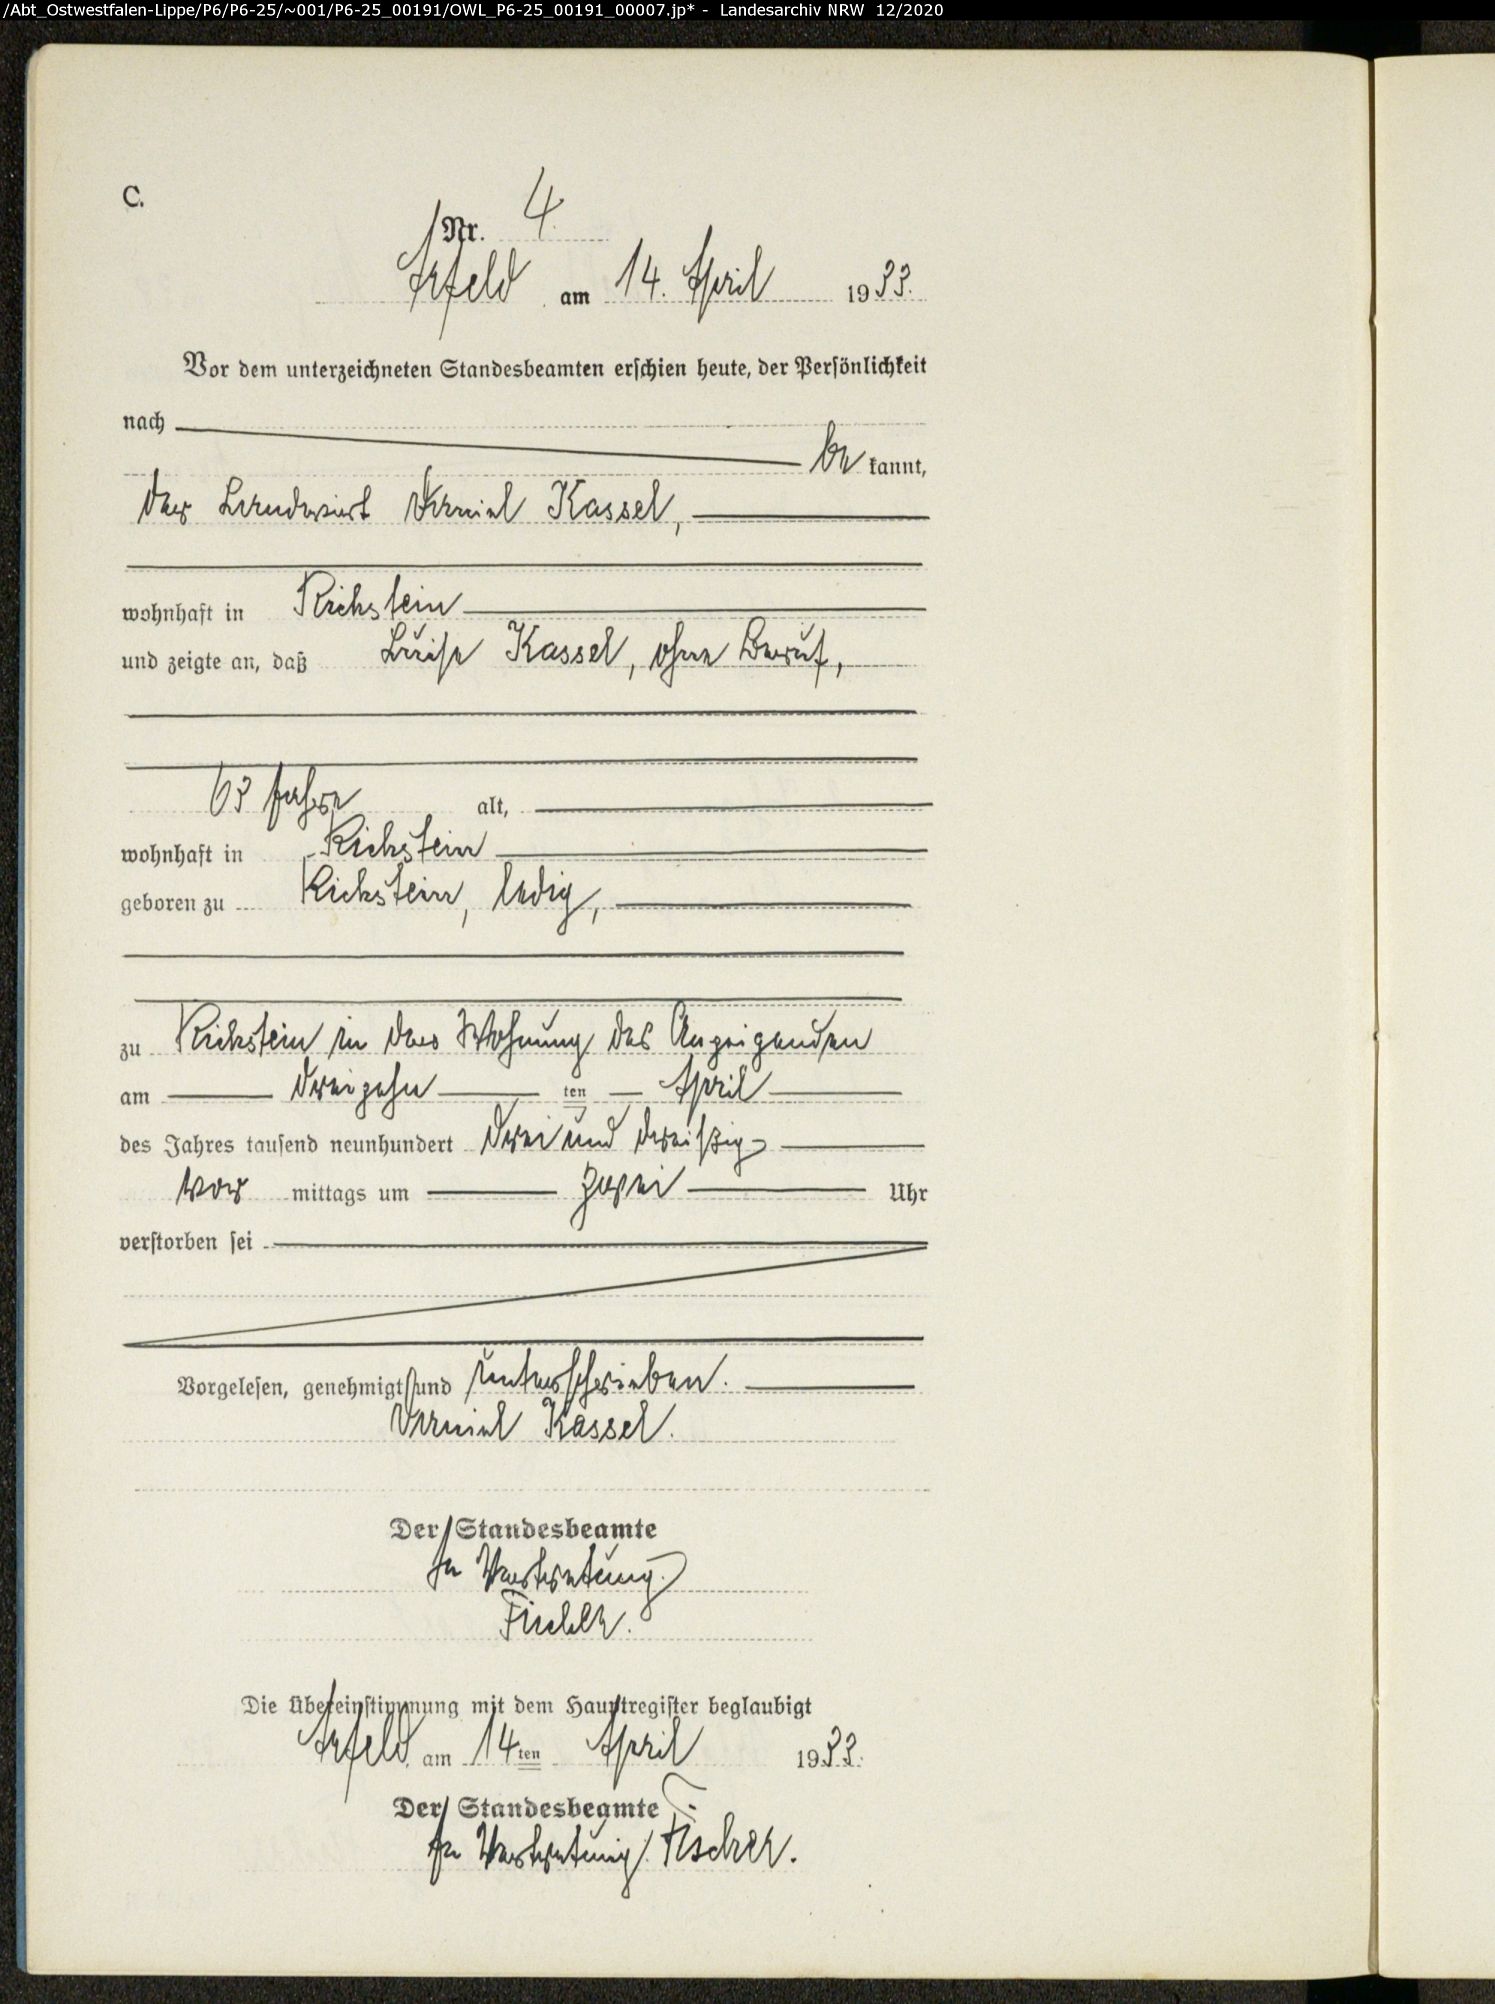 /Abt_Ostwestfalen-Lippe/P6/P6-25/~001/P6-25_00191/OWL_P6-25_00191_00007.jp* - Landesarchiv NRW 12/2020
C.
Nr. 4.
Arfeld am 14. April 1933.
Vor dem unterzeichneten Standesbeamten erschien heute, der Persönlichkeit
nach
be kannt,
der Landwirt Daniel Kassel,
wohnhaft in Richstein
und zeigte an, daß Luise Kassel, ohne Beruf,
63 Jahre alt,
wohnhaft in Richstein
geboren zu Richstein, ledig,
zu Richstein in der Wohnung des Anzeigenden
am dreizehn ten April
des Jahres tausend neunhundert drei und dreißig
vor mittags um zwei Uhr
verstorben sei
Vorgelesen, genehmigt und unterschrieben.
Daniel Kassel.
Der Standesbeamte
In Vertretung.
Fischer.
Die Übereinstimmung mit dem Hauptregister beglaubigt
Arfeld, am 14ten April 1933.
Der Standesbeamte
In Vertretung. Fischer.